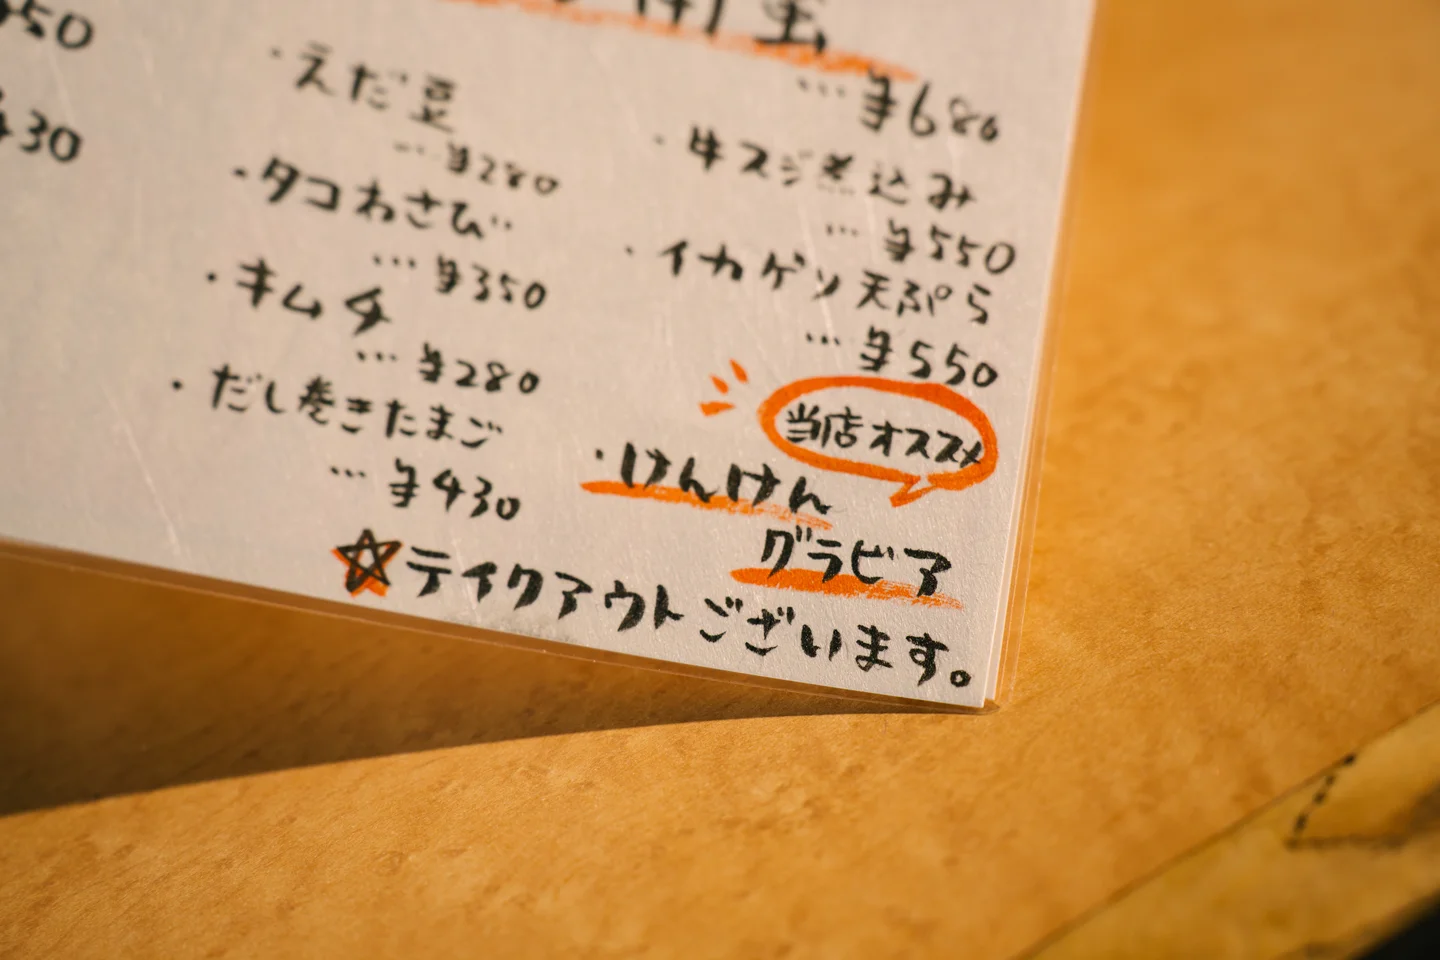 50
430
・えだ豆
…¥280
・タコわさび
…¥350
・キムチ
…¥280
・だし巻きたまご
…¥430
…¥680
・牛スジ煮込み
…¥550
・イカゲソ天ぷら
…¥550
当店オススメ
・けんけん
グラビア
☆テイクアウトございます。